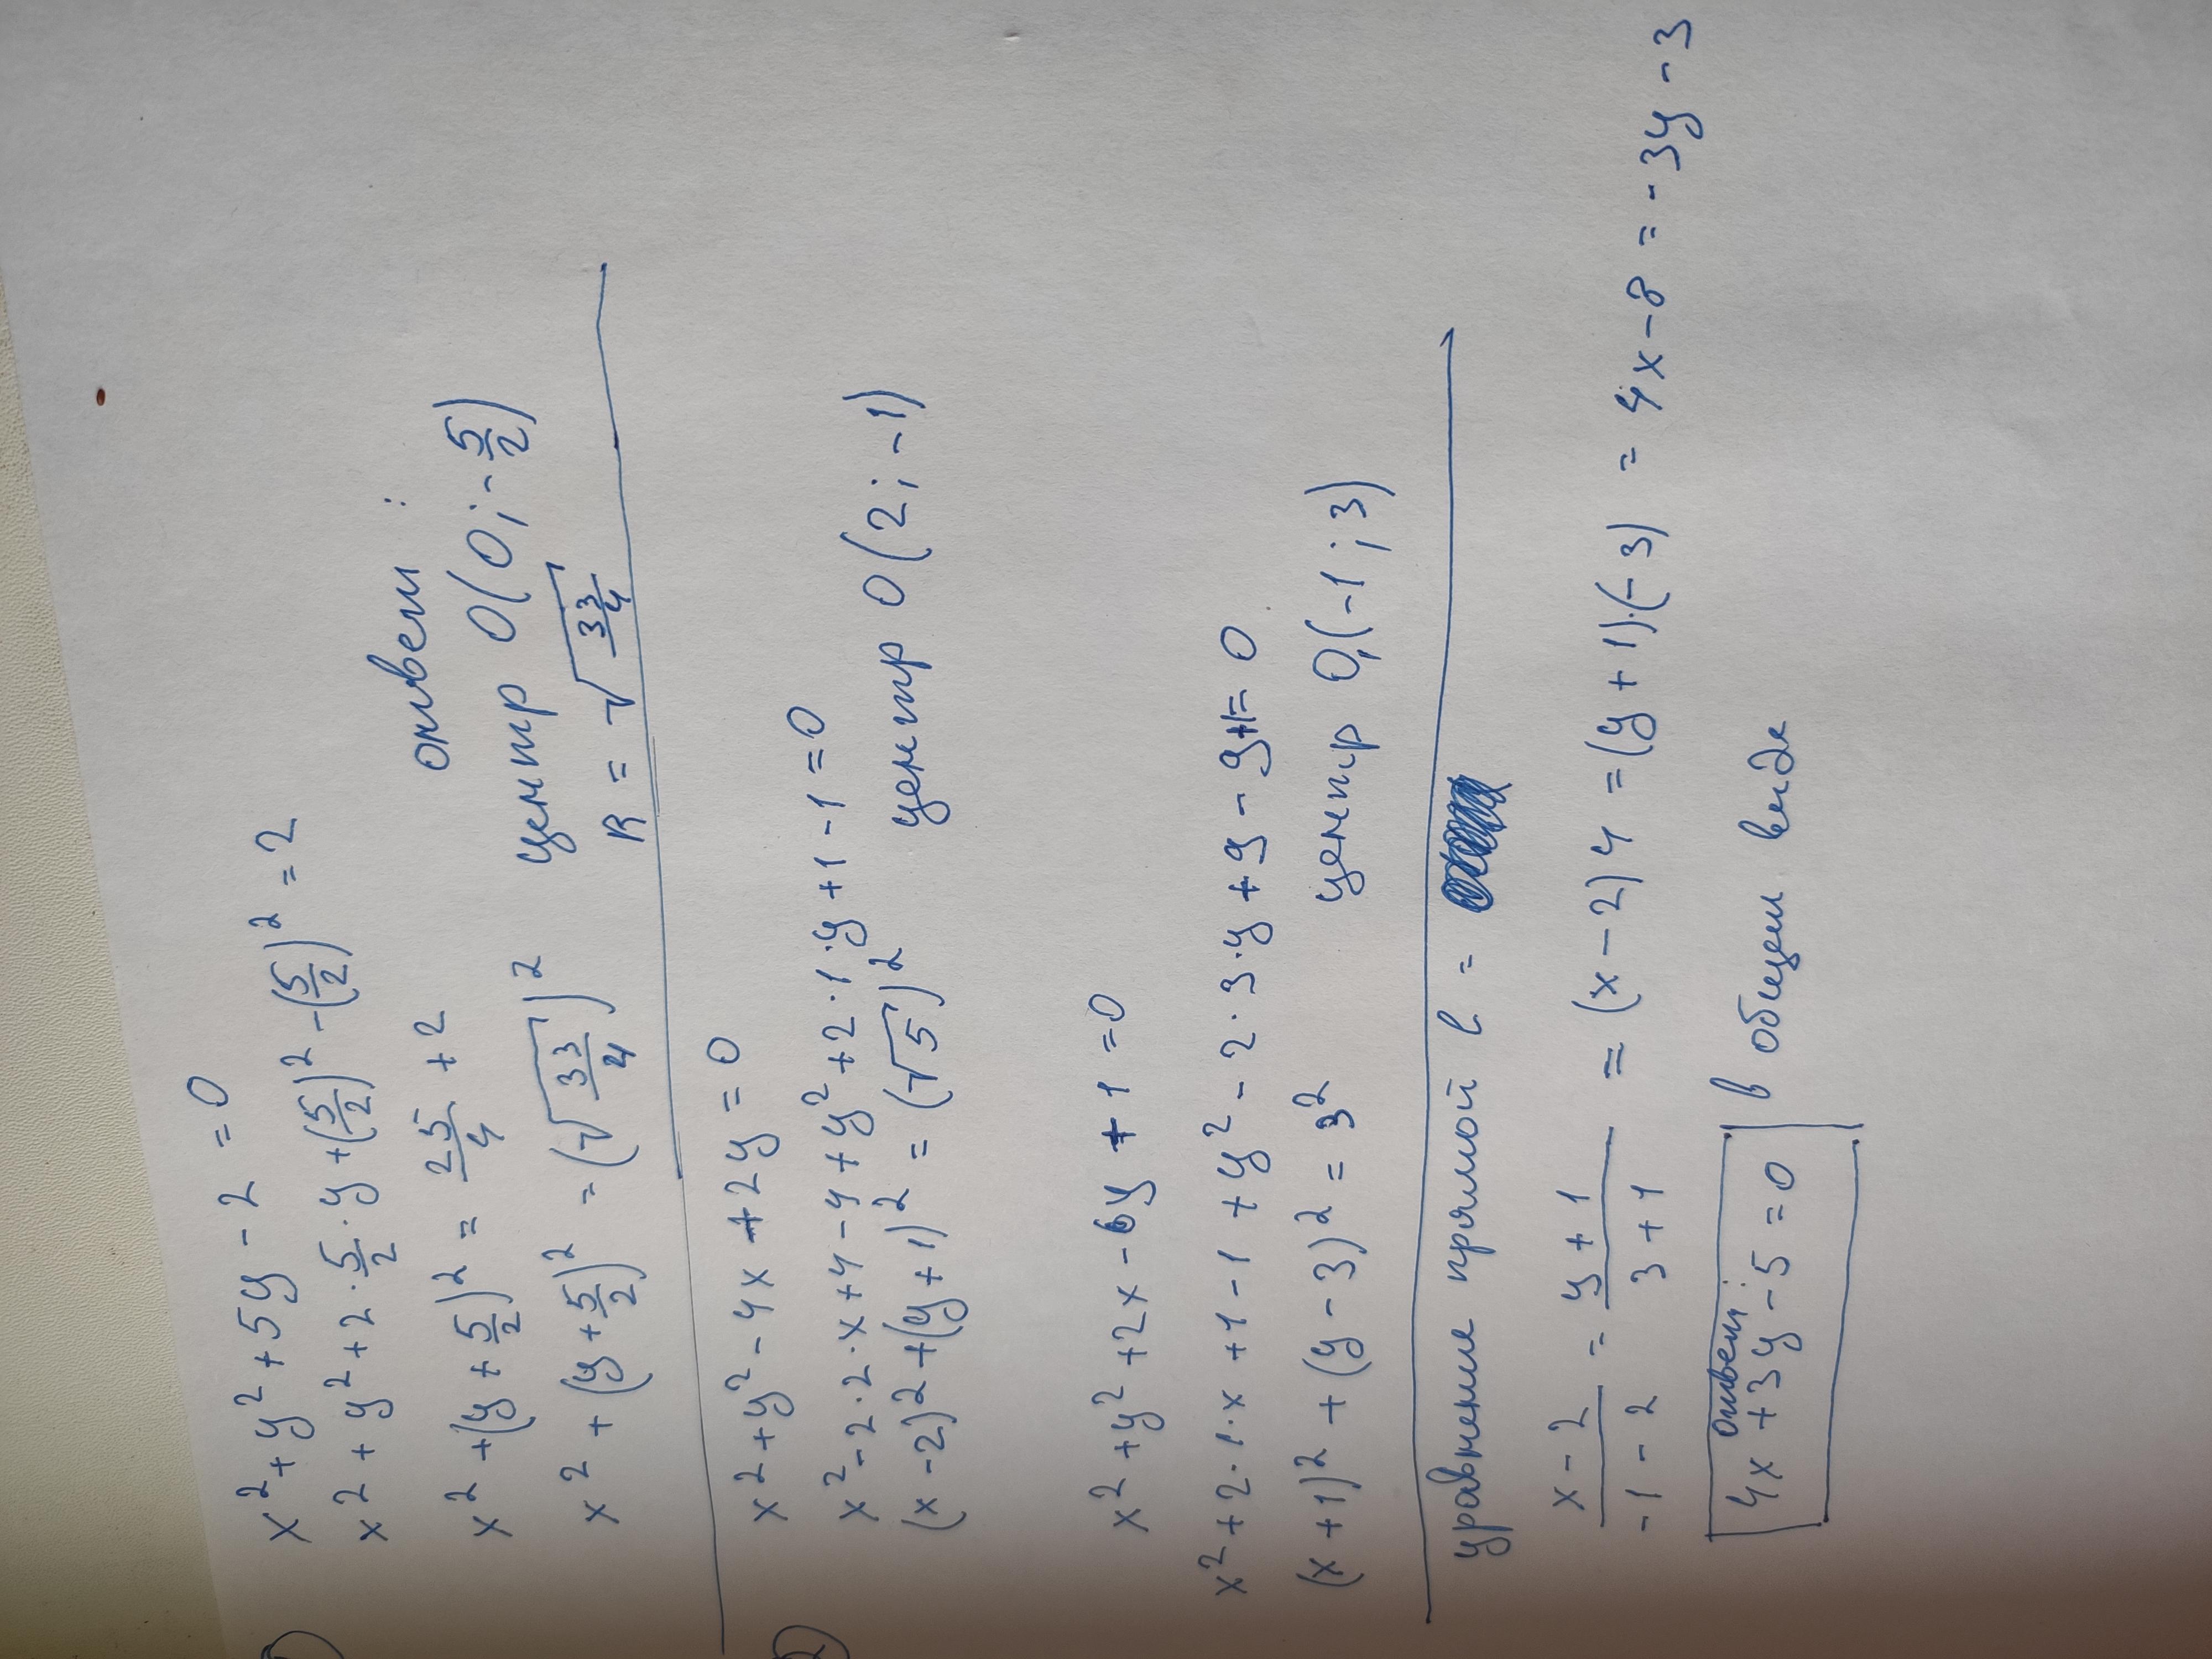 1)
x² + y² + 5y - 2 = 0
x² + y² + 2 · 5/2 · y + (5/2)² - (5/2)² = 2
x² + (y + 5/2)² = 25/4 + 2
x² + (y + 5/2)² = (√33/4)²
ответ:
центр O(0; -5/2)
R = √33/4
2)
x² + y² - 4x + 2y = 0
x² - 2·2·x + 4 - 4 + y² + 2·1·y + 1 - 1 = 0
(x - 2)² + (y + 1)² = (√5)²
центр O(2; -1)
x² + y² + 2x - 6y + 1 = 0
x² + 2·1·x + 1 - 1 + y² - 2·3·y + 9 - 9 + 1 = 0
(x + 1)² + (y - 3)² = 3²
центр O₁(-1; 3)
уравнение прямой l =
x - 2 / -1 - 2 = y + 1 / 3 + 1 = (x - 2) 4 = (y + 1)·(-3) = 4x - 8 = -3y - 3
ответ:
4x + 3y - 5 = 0
в общем виде